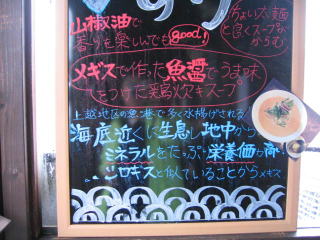 山椒油で
香りを楽しんでもgood!
ちょい太麺
と良くスープが
からむ
メギスで作った魚醤でうま味
をつけた鶏炊きスープ。
上越地区の漁港で多く水揚げされる!
海底近くに生息し地中から
ミネラルをたっぷり栄養価も高い
シロギスと似ていることからメギス